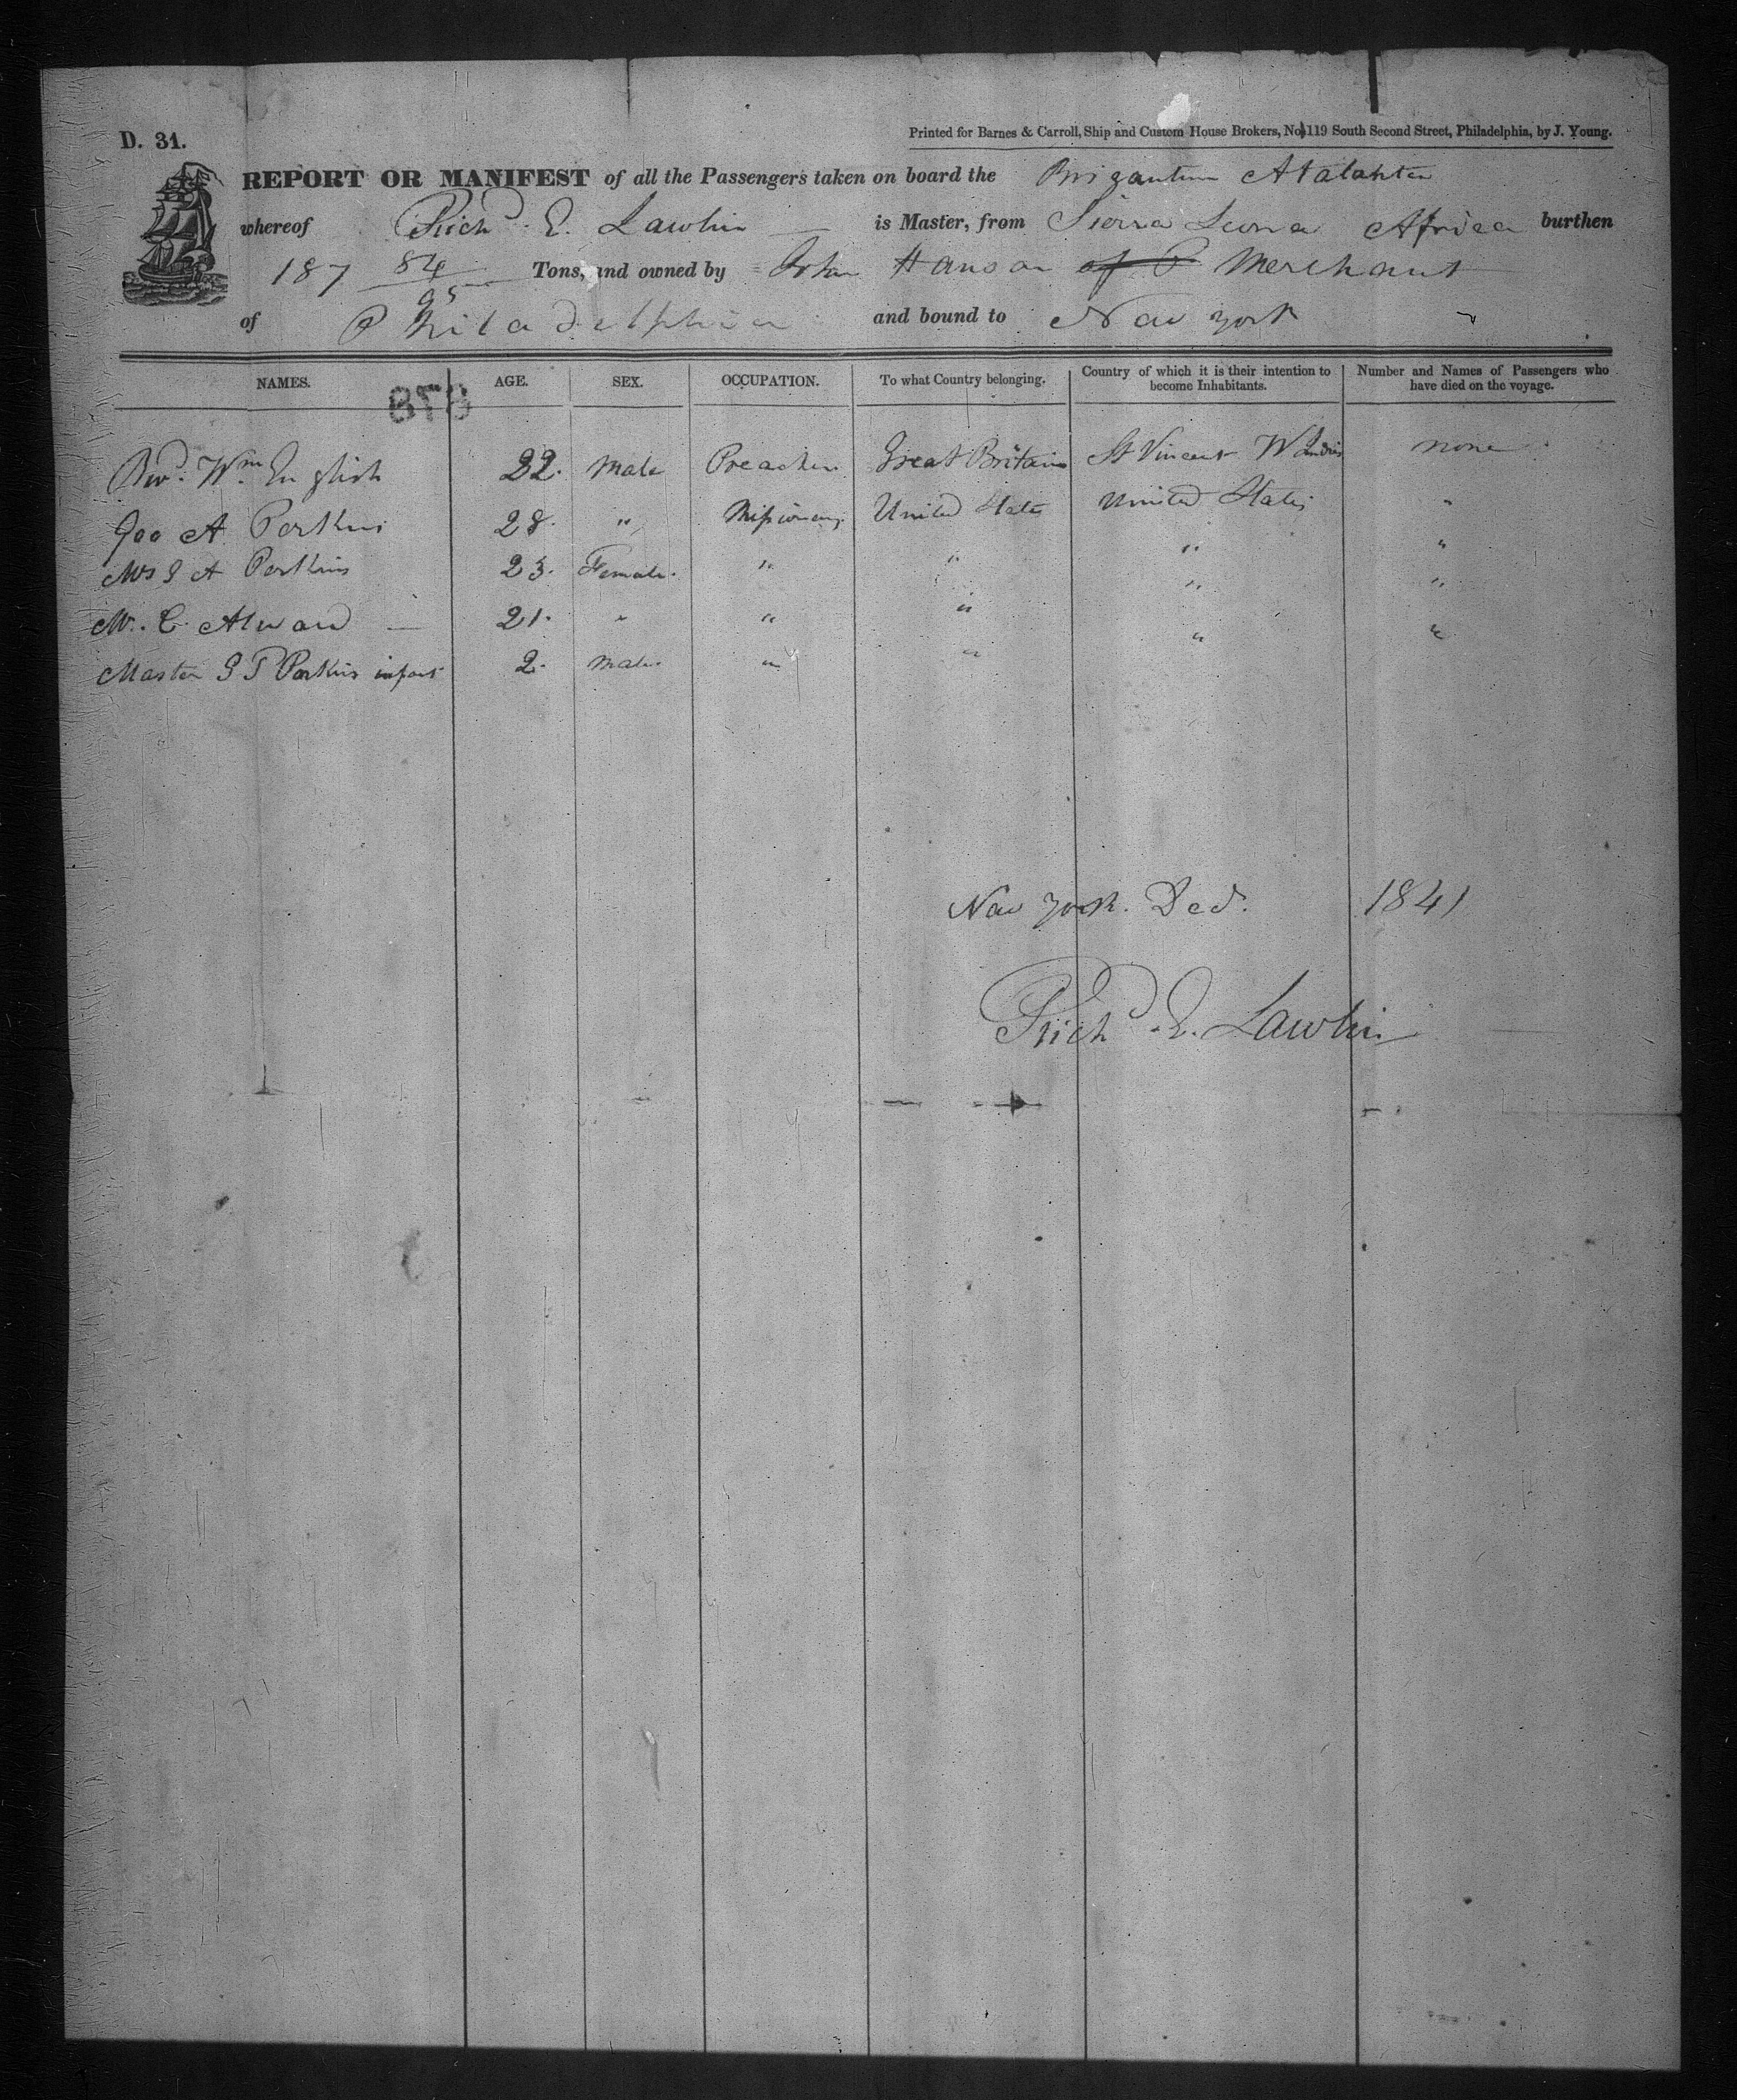 D. 31.
Printed for Barnes & Carroll, Ship and Custom House Brokers, No. 119 South Second Street, Philadelphia, by J. Young.
REPORT OR MANIFEST of all the Passengers taken on board the Brigantine Atalanta
whereof Rich^d E. Lawlin is Master, from Sierra Leona Africa burthen
187 84/95 Tons, and owned by John Hanson of P Merchant
of Philadelphia and bound to New York
NAMES. AGE. SEX. OCCUPATION. To what Country belonging. Country of which it is their intention to become Inhabitants. Number and Names of Passengers who have died on the voyage.
878
Rev^d. W^m. English 22. Male Preacher Great Britain St Vincent W Indies none
Geo A Perkins 28. " Missionary United States United States "
Mrs G A Perkins 23. Female. " " " "
M. C. Alward 21. " " " " "
Master G T Perkins infant 2. Male. " " " "
New York. Dec^r. 1841
Rich^d E. Lawlin